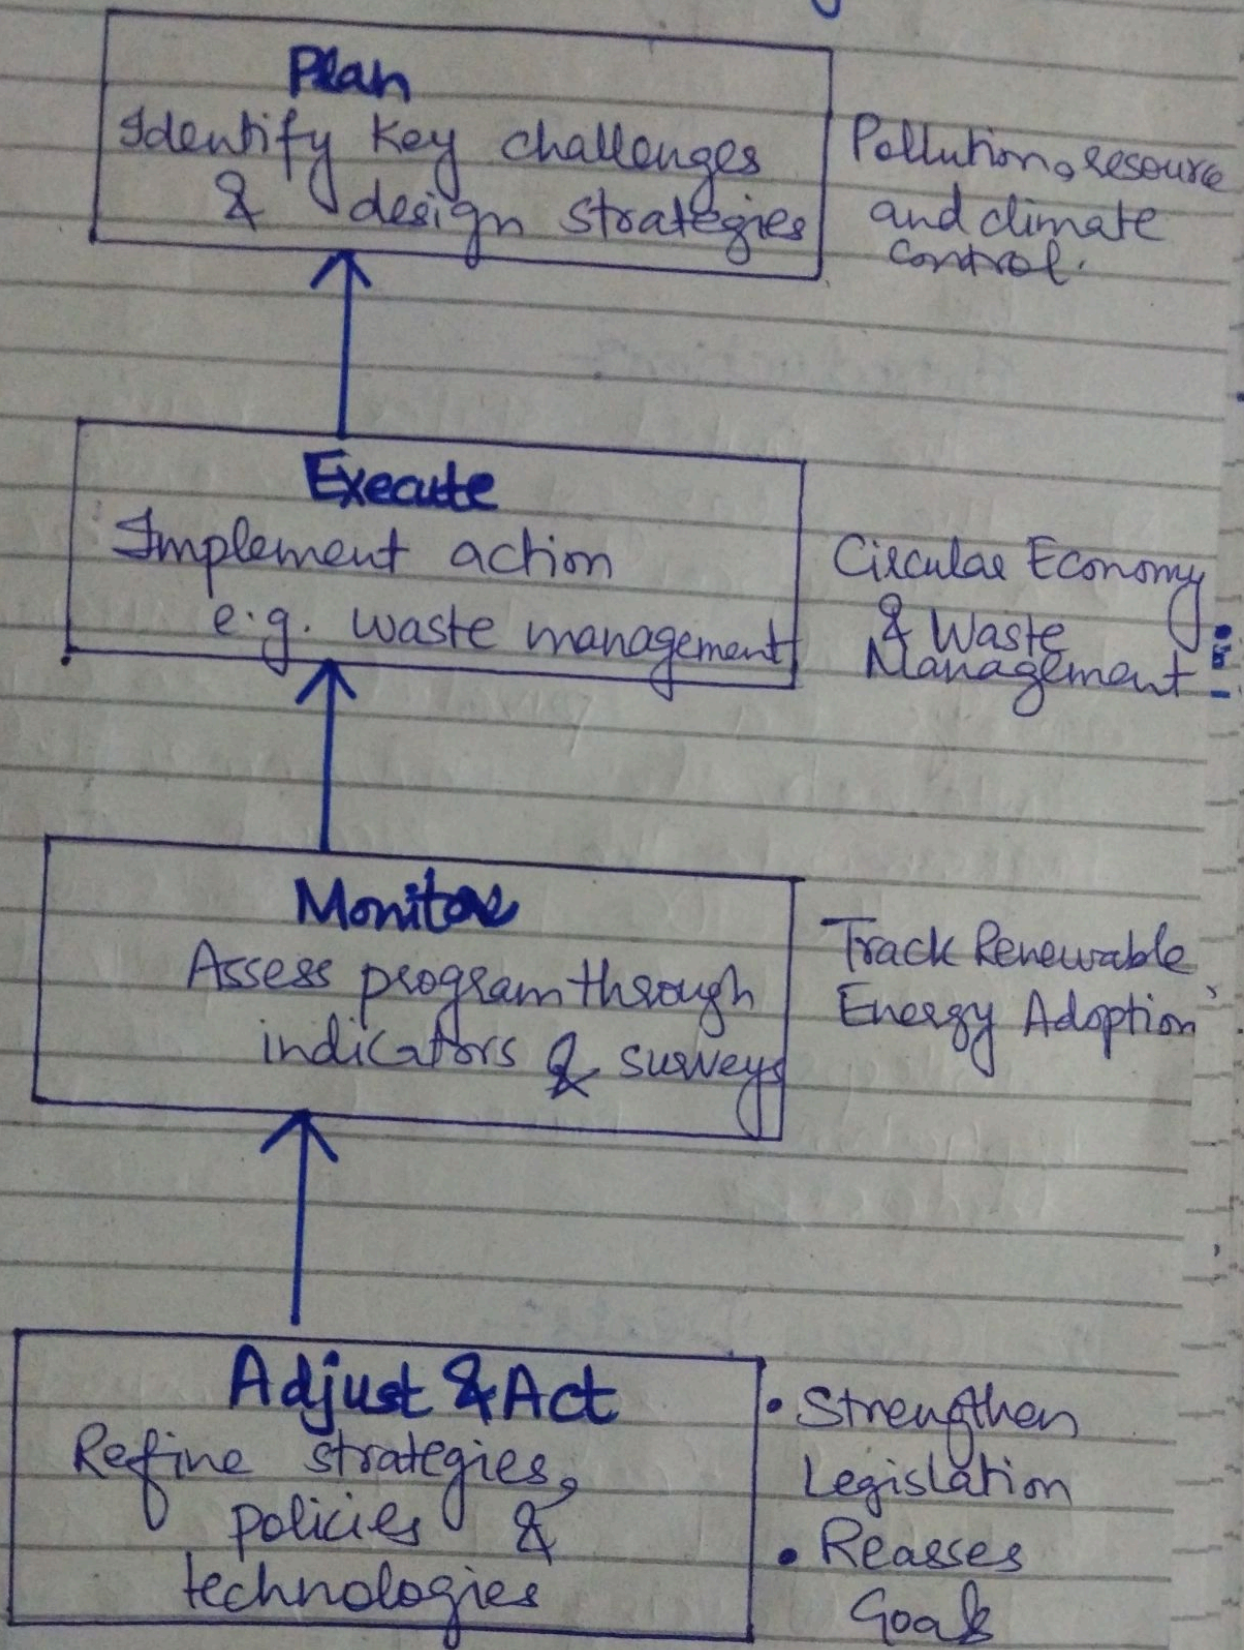 Plan
Identify Key challenges
& design strategies
Pollution, resource
and climate
control.
Execute
Implement action
e.g. waste management
Circular Economy
& Waste
Management
Monitor
Assess program through
indicators & surveys
Track Renewable
Energy Adoption
Adjust & Act
Refine strategies,
policies &
technologies
• Strengthen
Legislation
• Reasses
Goals